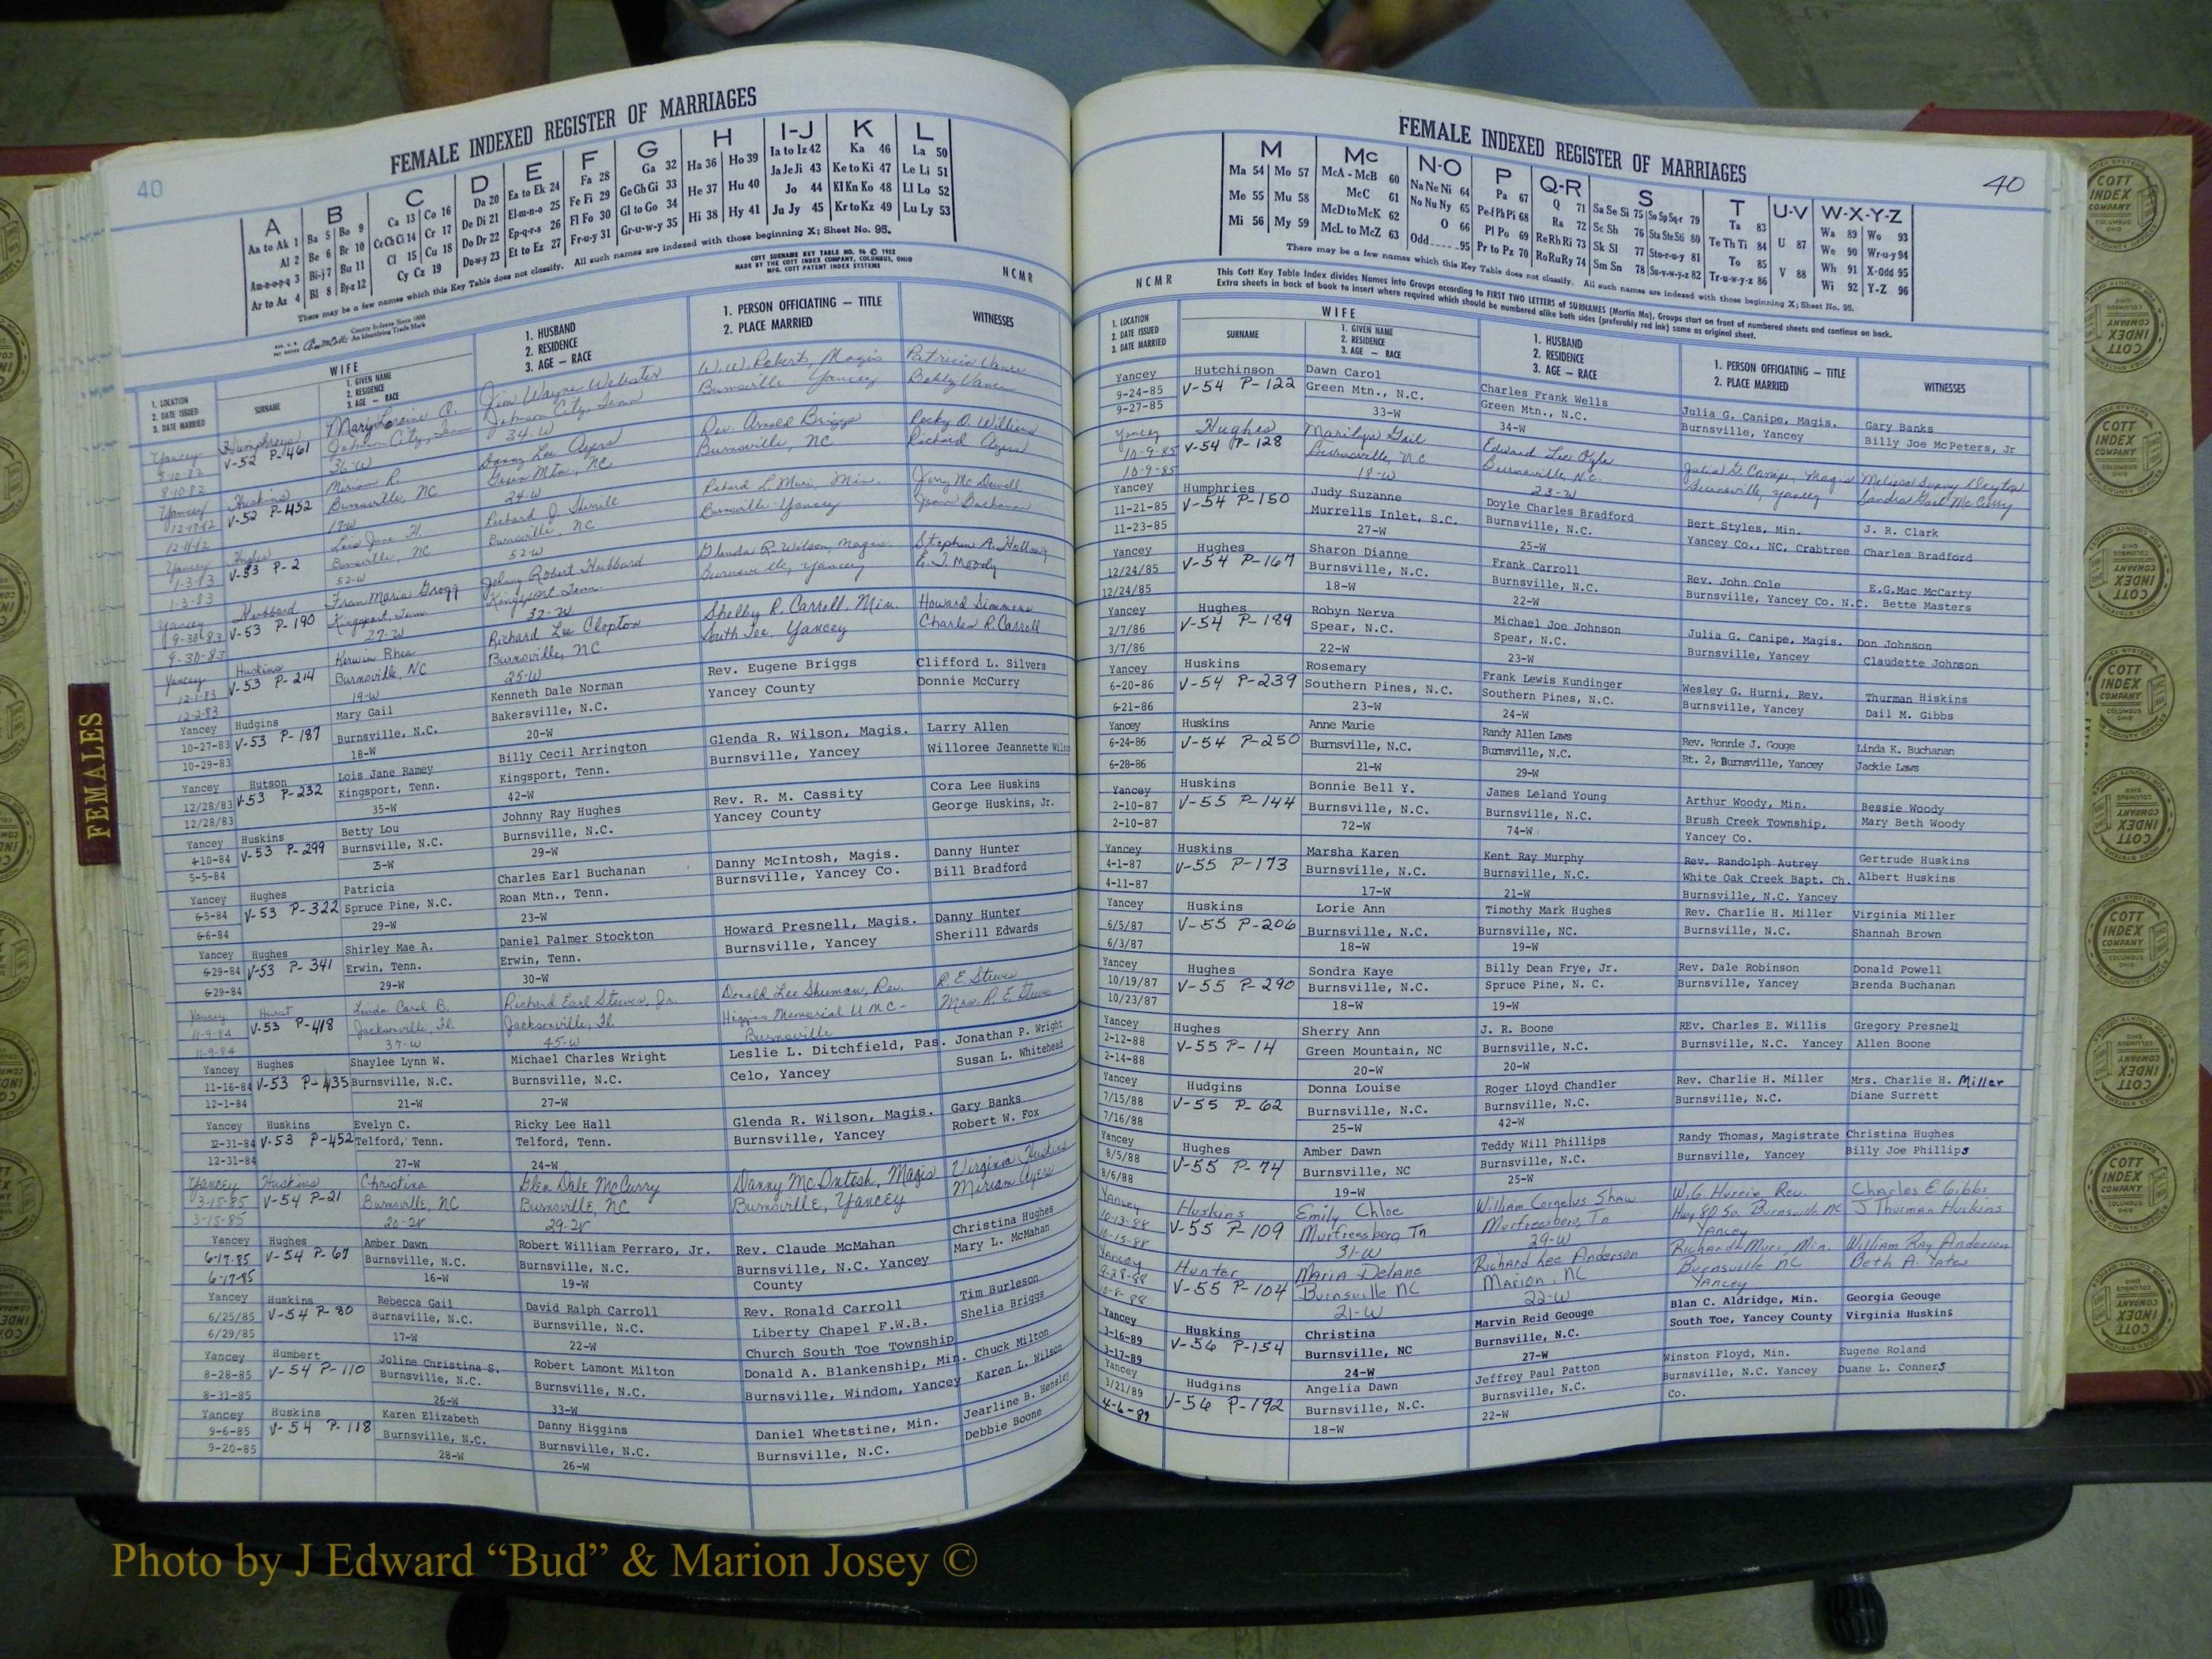 40
FEMALE INDEXED REGISTER OF MARRIAGES
A B C D E F G H I-J K L
Aa to Ak 1 Ba 5 Bo 9 Ca 13 Co 16 Da 20 Ea to Ek 24 Fa 28 Ga 32 Ha 36 Ho 39 Ia to Iz 42 Ka 46 La 50
Al 2 Be 6 Br 10 Ce Ch Ci 14 Cr 17 De Di 21 El-m-n-o 25 Fe Fi 29 Ge Gh Gi 33 He 37 Hu 40 Ja Je Ji 43 Ke to Ki 47 Le Li 51
Am-n-o-p-q 3 Bi-j 7 Bu 11 Cl 15 Cu 18 Do Dr 22 Ep-q-r-s 26 Fl Fo 30 Gl to Go 34 Hi 38 Hy 41 Jo 44 Kl Kn Ko 48 Ll Lo 52
Ar to Az 4 Bl 8 By-z 12 Cy Cz 19 Du-w-y 23 Et to Ez 27 Fr-u-y 31 Gr-u-w-y 35 Ju Jy 45 Kr to Kz 49 Lu Ly 53
There may be a few names which this Key Table does not classify. All such names are indexed with those beginning X; Sheet No. 95.
County Indexes Since 1888
An Identifying Trade Mark
COTT SURNAME KEY TABLE NO. 96 © 1952
MADE BY THE COTT INDEX COMPANY, COLUMBUS, OHIO
MFG. COTT PATENT INDEX SYSTEMS
NCMR
1. LOCATION
2. DATE ISSUED
3. DATE MARRIED
WIFE
SURNAME
1. GIVEN NAME
2. RESIDENCE
3. AGE – RACE
1. HUSBAND
2. RESIDENCE
3. AGE – RACE
1. PERSON OFFICIATING – TITLE
2. PLACE MARRIED
WITNESSES
Yancey Humphreys Mary Loraine O. Jim Wayne Webster W. W. Roberts, Magis Patricia Vance
8-10-82 V-52 P-461 Johnson City, Tenn Johnson City, Tenn Burnsville Yancey Bobby Vance
8-10-82 36-W 34-W
Yancey Huskins Miriam R. Danny Lee Ayers Rev. Arnold Briggs Rocky O. Williams
V-52 P-452 Burnsville, NC Green Mtn., NC Burnsville, NC Richard Ayers
17-W 24-W
Yancey Hughes Lois June H. Richard J. Richard L. Muri, Min. Jerry McDowell
1-3-83 V-53 P-2 Burnsville, NC Burnsville, NC Burnsville Yancey Jean Buchanan
1-3-83 52-W 52-W
Yancey Hubbard Fran Maria Grogg Johnny Robert Hubbard Glenda R. Wilson, Magis. Stephen A.
9-30-83 V-53 P-190 Kingsport, Tenn. Kingsport Tenn. Burnsville, Yancey E. T. Moody
9-30-83 27-W 32-W
Yancey Huskins Kerwin Rhea Richard Lee Clopton Shelby R. Carroll, Min. Howard Simmons
12-1-83 V-53 P-214 Burnsville, NC Burnsville, NC South Toe, Yancey Charles R. Carroll
12-2-83 19-W 25-W
Yancey Hudgins Mary Gail Kenneth Dale Norman Rev. Eugene Briggs Clifford L. Silvers
10-27-83 V-53 P-187 Burnsville, N.C. Bakersville, N.C. Yancey County Donnie McCurry
10-29-83 18-W 20-W
Yancey Hutson Lois Jane Ramey Billy Cecil Arrington Glenda R. Wilson, Magis. Larry Allen
12/28/83 V-53 P-232 Kingsport, Tenn. Kingsport, Tenn. Burnsville, Yancey Willoree Jeannette
12/28/83 35-W 42-W
Yancey Huskins Betty Lou Johnny Ray Hughes Rev. R. M. Cassity Cora Lee Huskins
4-10-84 V-53 P-299 Burnsville, N.C. Burnsville, N.C. Yancey County George Huskins, Jr.
5-5-84 29-W
Yancey Hughes Patricia Charles Earl Buchanan Danny McIntosh, Magis. Danny Hunter
6-5-84 V-53 P-322 Spruce Pine, N.C. Roan Mtn., Tenn. Burnsville, Yancey Co. Bill Bradford
6-6-84 29-W 23-W
Yancey Hughes Shirley Mae A. Daniel Palmer Stockton Howard Presnell, Magis. Danny Hunter
6-29-84 V-53 P-341 Erwin, Tenn. Erwin, Tenn. Burnsville, Yancey Sherill Edwards
6-29-84 29-W 30-W
Yancey Hurst Linda Carol B. Richard Earl Steeves, Jr. Donald Lee Shuman, Rev. R. E. Steeves
11-9-84 V-53 P-418 Jacksonville, Fl. Jacksonville, Fl. Higgins Memorial U M C - Mrs. R. E. Steeves
11-9-84 37-W 45-W Burnsville
Yancey Hughes Shaylee Lynn W. Michael Charles Wright Leslie L. Ditchfield, Pas. Jonathan P. Wright
11-16-84 V-53 P-435 Burnsville, N.C. Burnsville, N.C. Celo, Yancey Susan L. Whitehead
12-1-84 21-W 27-W
Yancey Huskins Evelyn C. Ricky Lee Hall Glenda R. Wilson, Magis. Gary Banks
12-31-84 V-53 P-452 Telford, Tenn. Telford, Tenn. Burnsville, Yancey Robert W. Fox
12-31-84 27-W 24-W
Yancey Huskins Christina Glen Dale McCurry Danny McIntosh, Magis Virginia Huskins
3-15-85 V-54 P-21 Burnsville, NC Burnsville, NC Burnsville, Yancey Miriam Ayers
3-15-85 20-W 29-W
Yancey Hughes Amber Dawn Robert William Ferraro, Jr. Rev. Claude McMahan Christina Hughes
6-17-85 V-54 P-67 Burnsville, N.C. Burnsville, N.C. Burnsville, N.C. Yancey Mary L. McMahan
6-17-85 16-W 19-W County
Yancey Huskins Rebecca Gail David Ralph Carroll Rev. Ronald Carroll Tim Burleson
6/25/85 V-54 P-80 Burnsville, N.C. Burnsville, N.C. Liberty Chapel F.W.B. Shelia Briggs
6/29/85 17-W 22-W Church South Toe Township
Yancey Humbert Joline Christina S. Robert Lamont Milton Donald A. Blankenship, Min. Chuck Milton
8-28-85 V-54 P-110 Burnsville, N.C. Burnsville, N.C. Burnsville, Windom, Yancey Karen L. Wilson
8-31-85 26-W 33-W
Yancey Huskins Karen Elizabeth Danny Higgins Daniel Whetstine, Min. Jearline B. Hensley
9-6-85 V-54 P-118 Burnsville, N.C. Burnsville, N.C. Burnsville, N.C. Debbie Boone
9-20-85 28-W 26-W
FEMALES
FEMALE INDEXED REGISTER OF MARRIAGES
40
M Mc N-O P Q-R S T U-V W-X-Y-Z
Ma 54 Mo 57 McA - McB 60 Na Ne Ni 64 Pa 67 Q 71 Sa Se Si 75 So Sp Sq-r 79 Ta 83 U 87 Wa 89 Wo 93
Me 55 Mu 58 McC 61 No Nu Ny 65 Pe-f Ph Pi 68 Ra 72 Sc Sh 76 Sta Ste Sti 80 Te Th Ti 84 V 88 We 90 Wr-u-y 94
Mi 56 My 59 McD to McK 62 O 66 Pl Po 69 Re Rh Ri 73 Sk Sl 77 Sto-r-u-y 81 To 85 Wh 91 X-Odd 95
McL to McZ 63 Odd 95 Pr to Pz 70 Ro Ru Ry 74 Sm Sn 78 Su-v-w-y-z 82 Tr-u-w-y-z 86 Wi 92 Y-Z 96
There may be a few names which this Key Table does not classify. All such names are indexed with those beginning X; Sheet No. 95.
This Cott Key Table Index divides Names into Groups according to FIRST TWO LETTERS of SURNAMES (Martin Ma), Groups start on front of numbered sheets and continue on back.
Extra sheets in back of book to insert where required which should be numbered alike both sides (preferably red ink) same as original sheet.
NCMR
1. LOCATION
2. DATE ISSUED
3. DATE MARRIED
WIFE
SURNAME
1. GIVEN NAME
2. RESIDENCE
3. AGE – RACE
1. HUSBAND
2. RESIDENCE
3. AGE – RACE
1. PERSON OFFICIATING – TITLE
2. PLACE MARRIED
WITNESSES
Yancey Hutchinson Dawn Carol Charles Frank Wells Julia G. Canipe, Magis. Gary Banks
9-24-85 V-54 P-122 Green Mtn., N.C. Green Mtn., N.C. Burnsville, Yancey Billy Joe McPeters, Jr
9-27-85 33-W 34-W
Yancey Hughes Marilyn Gail Edward Lee Ogle Julia G. Canipe, Magis Melissa Deyton
10-9-85 V-54 P-128 Burnsville, NC Burnsville, N.C. Burnsville, Yancey Sandra Gail McCurry
10-9-85 18-W 23-W
Yancey Humphries Judy Suzanne Doyle Charles Bradford Bert Styles, Min. J. R. Clark
11-21-85 V-54 P-150 Murrells Inlet, S.C. Burnsville, N.C. Yancey Co., NC, Crabtree Charles Bradford
11-23-85 27-W 25-W
Yancey Hughes Sharon Dianne Frank Carroll Rev. John Cole E.G.Mac McCarty
12/24/85 V-54 P-167 Burnsville, N.C. Burnsville, N.C. Burnsville, Yancey Co. N.C. Bette Masters
12/24/85 18-W 22-W
Yancey Hughes Robyn Nerva Michael Joe Johnson Julia G. Canipe, Magis. Don Johnson
2/7/86 V-54 P-189 Spear, N.C. Spear, N.C. Burnsville, Yancey Claudette Johnson
3/7/86 22-W 23-W
Yancey Huskins Rosemary Frank Lewis Kundinger Wesley G. Hurni, Rev. Thurman Hiskins
6-20-86 V-54 P-239 Southern Pines, N.C. Southern Pines, N.C. Burnsville, Yancey Dail M. Gibbs
6-21-86 23-W 24-W
Yancey Huskins Anne Marie Randy Allen Laws Rev. Ronnie J. Gouge Linda K. Buchanan
6-24-86 V-54 P-250 Burnsville, N.C. Burnsville, N.C. Rt. 2, Burnsville, Yancey Jackie Laws
6-28-86 21-W 29-W
Yancey Huskins Bonnie Bell Y. James Leland Young Arthur Woody, Min. Bessie Woody
2-10-87 V-55 P-144 Burnsville, N.C. Burnsville, N.C. Brush Creek Township, Mary Beth Woody
2-10-87 72-W 74-W Yancey Co.
Yancey Huskins Marsha Karen Kent Ray Murphy Rev. Randolph Autrey Gertrude Huskins
4-1-87 V-55 P-173 Burnsville, N.C. Burnsville, N.C. White Oak Creek Bapt. Ch. Albert Huskins
4-11-87 17-W 21-W Burnsville, N.C. Yancey
Yancey Huskins Lorie Ann Timothy Mark Hughes Rev. Charlie H. Miller Virginia Miller
6/5/87 V-55 P-206 Burnsville, N.C. Burnsville, NC. Burnsville, N.C. Shannah Brown
6/3/87 18-W 19-W
Yancey Hughes Sondra Kaye Billy Dean Frye, Jr. Rev. Dale Robinson Donald Powell
10/19/87 V-55 P-290 Burnsville, N.C. Spruce Pine, N. C. Burnsville, Yancey Brenda Buchanan
10/23/87 18-W 19-W
Yancey Hughes Sherry Ann J. R. Boone REv. Charles E. Willis Gregory Presnell
2-12-88 V-55 P-14 Green Mountain, NC Burnsville, N.C. Burnsville, N.C. Yancey Allen Boone
2-14-88 20-W 20-W
Yancey Hudgins Donna Louise Roger Lloyd Chandler Rev. Charlie H. Miller Mrs. Charlie H. Miller
7/15/88 V-55 P-62 Burnsville, N.C. Burnsville, N.C. Burnsville, N.C. Diane Surrett
7/16/88 25-W 42-W
Yancey Hughes Amber Dawn Teddy Will Phillips Randy Thomas, Magistrate Christina Hughes
8/5/88 V-55 P-74 Burnsville, NC Burnsville, N.C. Burnsville, Yancey Billy Joe Phillips
8/6/88 19-W 25-W
Yancey Huskins Emily Chloe William Cornelus Shaw W.G. Rev. Charles E Gibbs
10-13-88 V-55 P-109 Murfreesboro Tn Murfreesboro, Tn Hwy 80 So. Burnsville NC J Thurman Huskins
10-15-88 31-W 29-W Yancey
Yancey Hunter Maria Delane Richard Lee Anderson Richard Muri, Min. William Ray Anderson
9-28-88 V-55 P-104 Burnsville NC Marion, NC Burnsville NC Beth A. Yates
10-8-88 21-W 22-W Yancey
Yancey Huskins Christina Marvin Reid Geouge Blan C. Aldridge, Min. Georgia Geouge
3-16-89 V-56 P-154 Burnsville, NC Burnsville, N.C. South Toe, Yancey County Virginia Huskins
3-17-89 24-W 27-W
Yancey Hudgins Angelia Dawn Jeffrey Paul Patton Winston Floyd, Min. Eugene Roland
3/21/89 V-56 P-192 Burnsville, N.C. Burnsville, N.C. Burnsville, N.C. Yancey Duane L. Conners
4-6-89 18-W 22-W Co.
COTT INDEX COMPANY COLUMBUS OHIO
Photo by J Edward “Bud” & Marion Josey ©